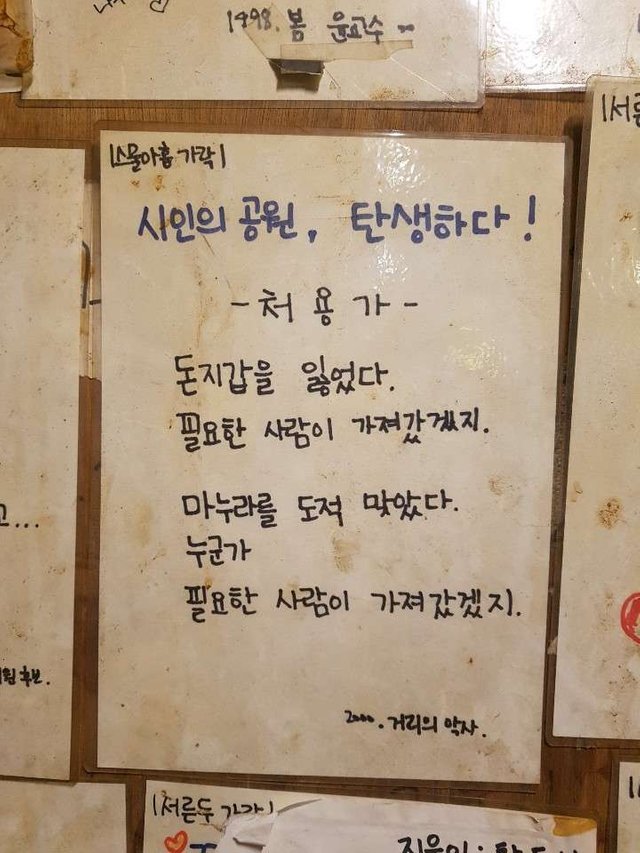 1998. 봄 윤교수
|스물아홉 가락|
시인의 공원, 탄생하다!
- 처 용 가 -
돈지갑을 잃었다.
필요한 사람이 가져갔겠지.
마누라를 도적 맞았다.
누군가
필요한 사람이 가져갔겠지.
2000. 거리의 악사.
고...
후보.
|서른
|서른두 가락|